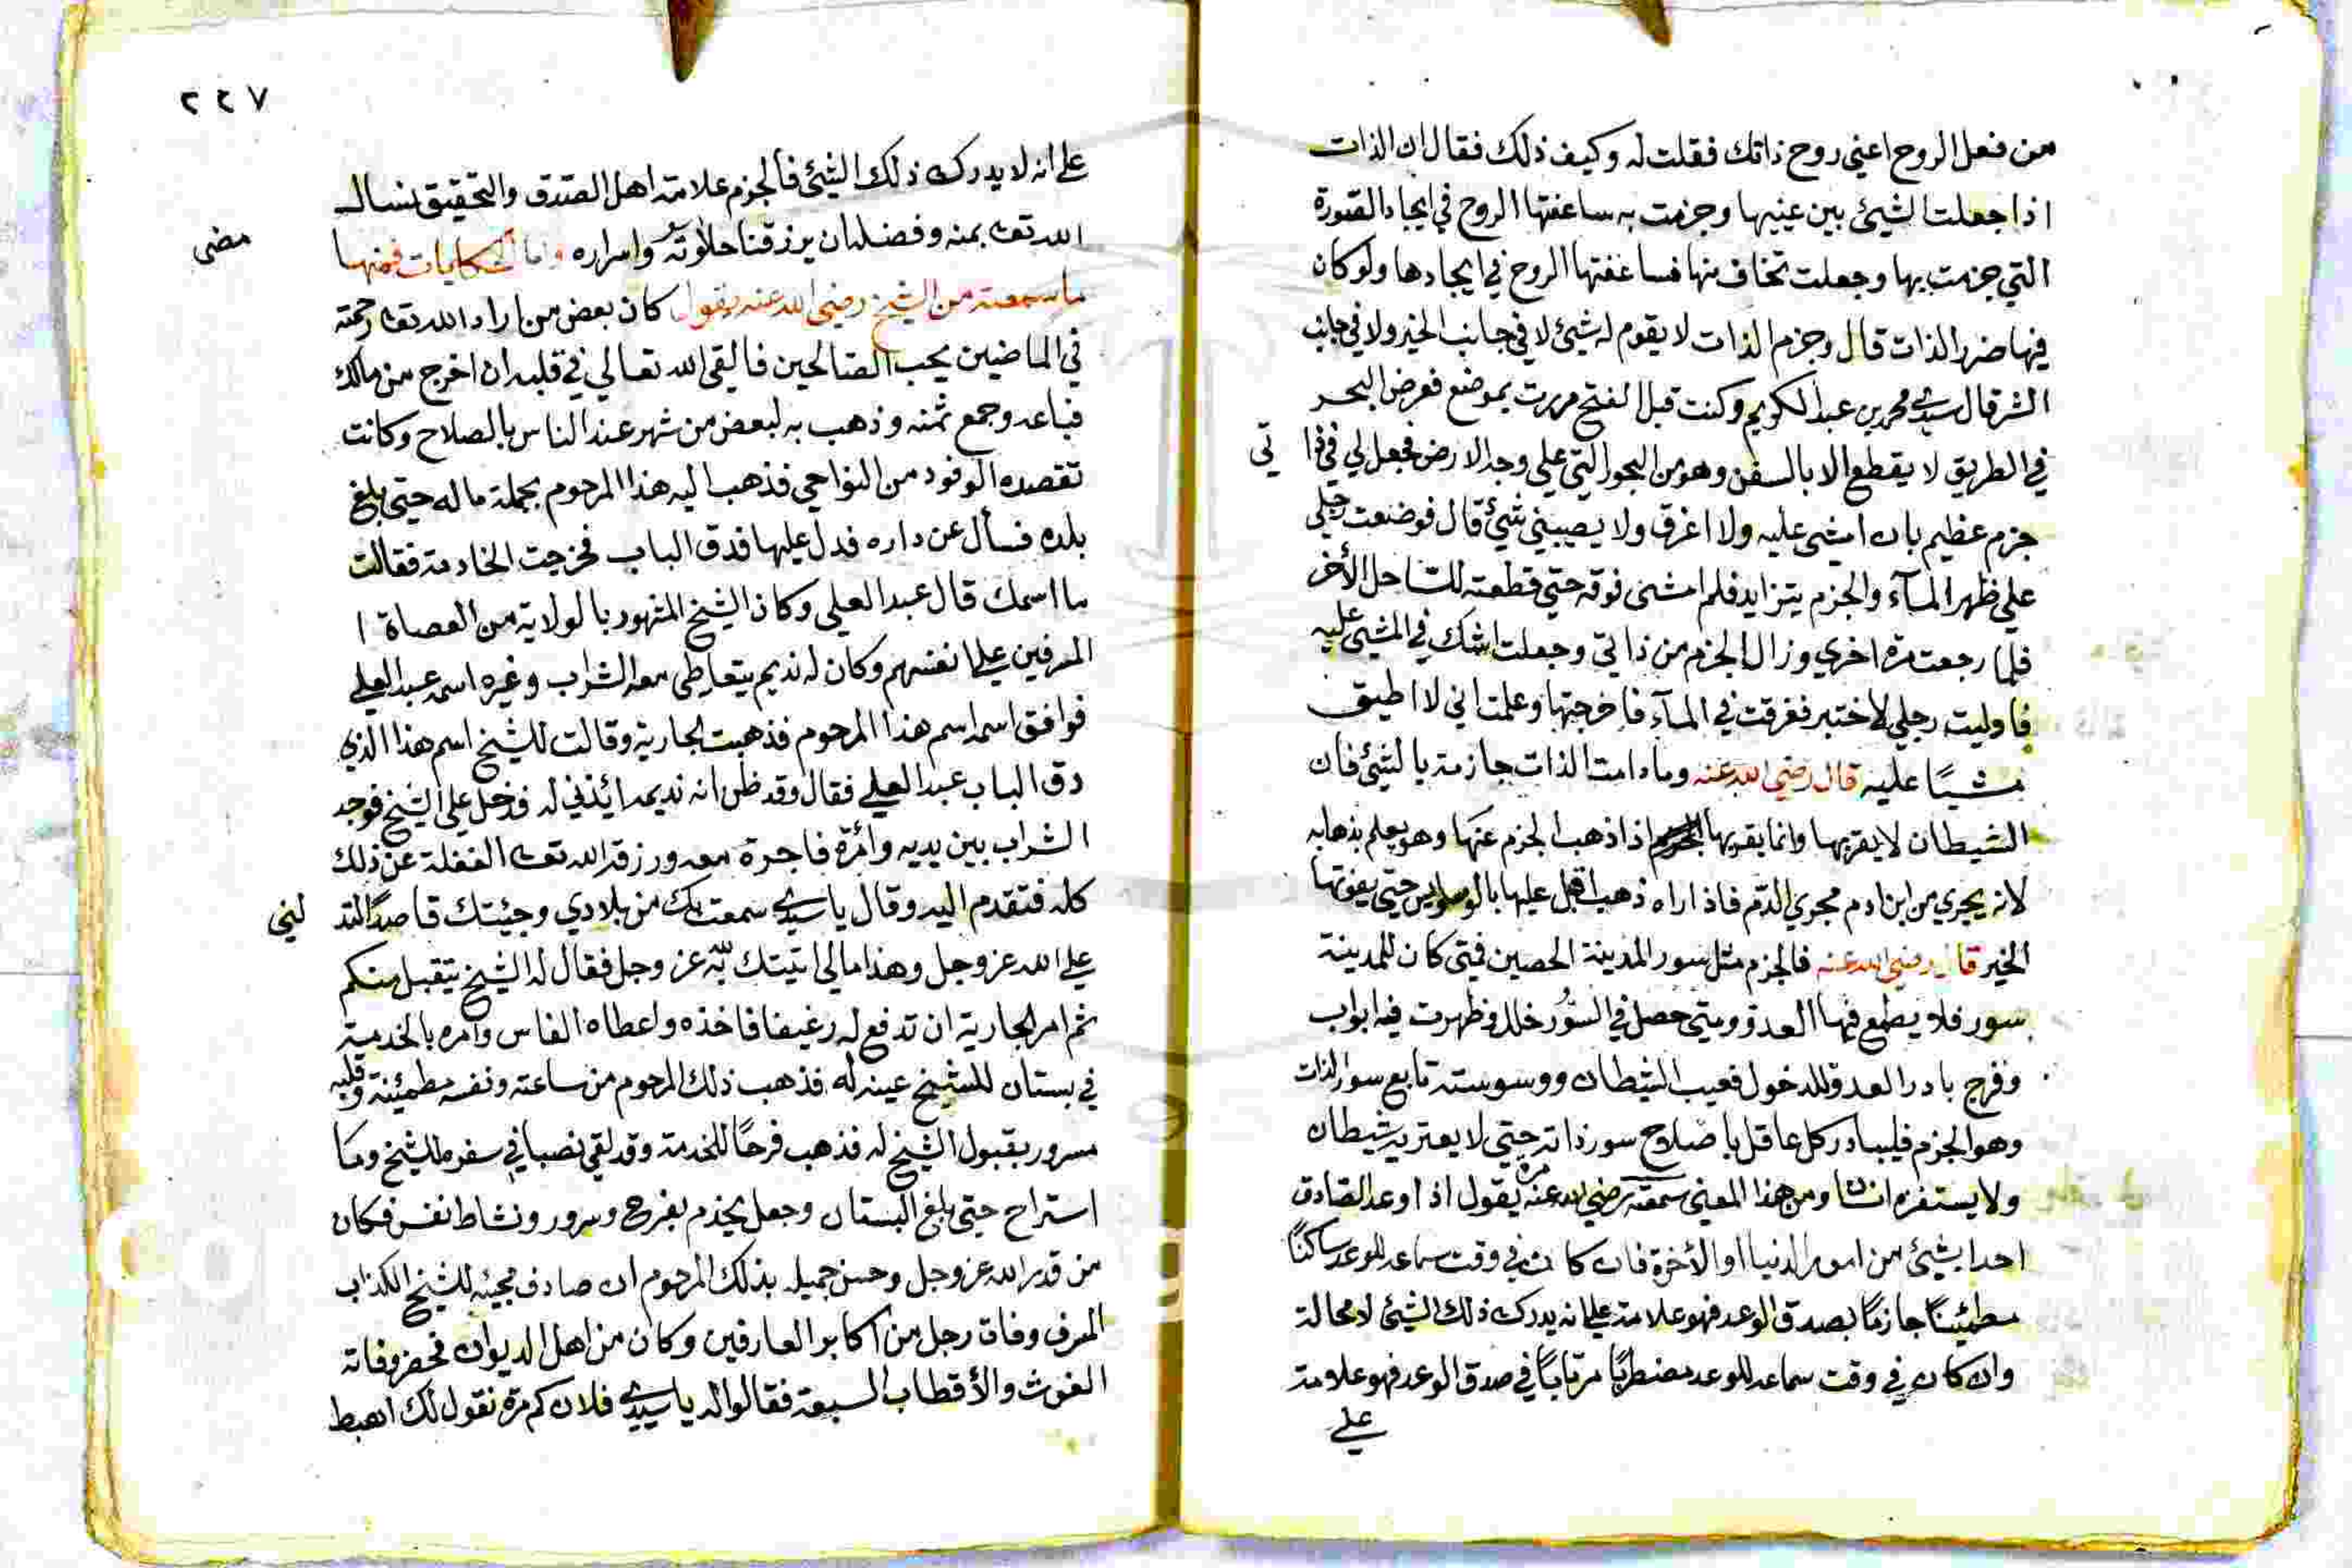 من فعل الروح اعني روح ذاتك فقلت له وكيف ذلك فقال ان الذات
اذا جعلت الشيئ بين عينيها وجزمت به ساعفتها الروح في ايجاد الصورة
التي جزمت بها وجعلت تخاف منها فساعفتها الروح في ايجادها ولو كان
فيها ضرر الذات قال وجزم الذات لا يقوم له شيئ لا في جانب الخير ولا في جانب
الشر قال سيدي محمد بن عبد الكريم وكنت قبل الفتح مررت بموضع فعرض البحر
في الطريق لا يقطع الا بالسفن وهو من البحور التي على وجه الارض فجعل لي في ذا تي
جزم عظيم بان امشي عليه ولا اغرق ولا يصيبني شيئ قال فوضعت رجلي
علي ظهر المآء والجزم يتزايد فلم امشي فوقه حتي قطعته للساحل الأخر
فلما رجعت مرة اخري وزال الجزم من ذاتي وجعلت اشك في المشي عليه
فاوليت رجلي لاختبر فغرقت في المآء فاخرجتها وعلمت اني لا اطيق
مشيًا عليه قال رضي الله عنه وما دامت الذات جازمة بالشيئ فان
الشيطان لا يقربها وانما يقربها اذا ذهب الجزم عنها وهو يعلم بذهابه
لانه يجري من ابن ادم مجري الدم فاذا راه ذهب اقبل عليها بالوسواس حتي يفوتها
الخير قال رضي الله عنه فالجزم مثل سور المدينة الحصين فمتي كان للمدينة
سور فلا يطمع فيها العدو ومتي حصل في السُّور خلل وظهرت فيه ابواب
وفرج بادر العدو للدخول فعيب الشيطان ووسوسته تابع سور الذات
وهو الجزم فليبادر كل عاقل باصلاح سور ذاته حتي لا يعتريه شيطان
ولا يستفزه انسان ومن هذا المعني سمعته رضي الله عنه مرة يقول اذا وعد الصادق
احدا بشيئ من امور الدنيا او الأخرة فان كان في وقت سماعه للوعد ساكنًا
مطمئينًا جازمًا بصدق الوعد فهو علامة علي انه يدرك ذلك الشيئ لا محالة
وان كان في وقت سماعه للوعد مضطربًا مرتابًا في صدق الوعد فهو علامة
علي
٢٢٧
علي انه لا يدرك ذلك الشيئ فالجزم علامة اهل الصدق والتحقيق نسال
الله تعالى بمنه وفضله ان يرزقنا حلاوته واسراره واما الحكايات فمنها مضى
ما سمعته من الشيخ رضي الله عنه يقول كان بعض من اراد الله تعالى رحمته
في الماضيين يحب الصالحين فالقي الله تعالي في قلبه ان اخرج من مالك
فباعه وجمع ثمنه وذهب به لبعض من شهر عند الناس بالصلاح وكانت
تقصده الوفود من النواحي فذهب اليه هذا المرحوم بجملة ماله حتي بلغ
بلده فسأل عن داره فدل عليها فدق الباب فخرجت الخادمة فقالت
ما اسمك قال عبد العلي وكان الشيخ المشهور بالولاية من العصاة ا
المسرفين علي انفسهم وكان له نديم يتعاطى معه الشراب وغيره اسمه عبد العلي
فوافق اسمه اسم هذا المرحوم فذهبت الجارية وقالت للشيخ اسم هذا الذي
دق الباب عبد العلي فقال وقد ظن انه نديمه ائذني له فدخل على الشيخ فوجد
الشراب بين يديه وامرأة فاجرة معه ورزقه الله تعالى الغفلة عن ذلك
كله فتقدم اليه وقال يا سيدي سمعت بك من بلادي وجئتك قاصدًا لتد لني
علي الله عز وجل وهذا مالي اتيتك به لله عز وجل فقال له الشيخ يتقبل منكم
ثم امر الجارية ان تدفع له رغيفا فاخذه واعطاه الفاس وأمره بالخدمة
في بستان للشيخ عينه له فذهب ذلك المرحوم من ساعته ونفسه مطمئينة وقلبه
مسرور بقبول الشيخ له فذهب فرحًا للخدمة وقد لقي نصبا في سفره للشيخ وما
استراح حتي بلغ البستان وجعل يخدم بفرح وسرور ونشاط نفس فكان
من قدر الله عز وجل وحسن جميله بذلك المرحوم ان صادف مجيئه للشيخ الكذاب
المسرف وفاة رجل من اكابر العارفين وكان من اهل الديوان فحضر وفاته
الغوث والأقطاب السبعة فقالوا له يا سيدي فلان كم مرة نقول لك اهبط